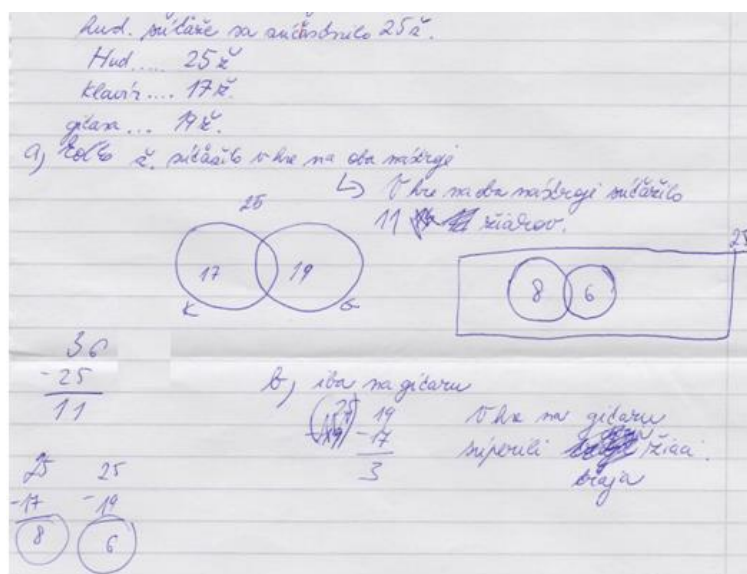 hud. súťaže sa zúčastnilo 25 ž.
Hud.... 25 ž
Klavír.... 17 ž.
gitara... 19 ž.
a, koľko ž. súťažilo v hre na oba nástroje
↳ V hre na oba nástroje súťažilo
11 žiakov.
25
17 19
K G
25
8 6
36
- 25
11
b, iba na gitaru
25 19
- 19 - 17
3
V hre na gitaru
súperili žiaci.
traja
25 25
- 17 - 19
8 6